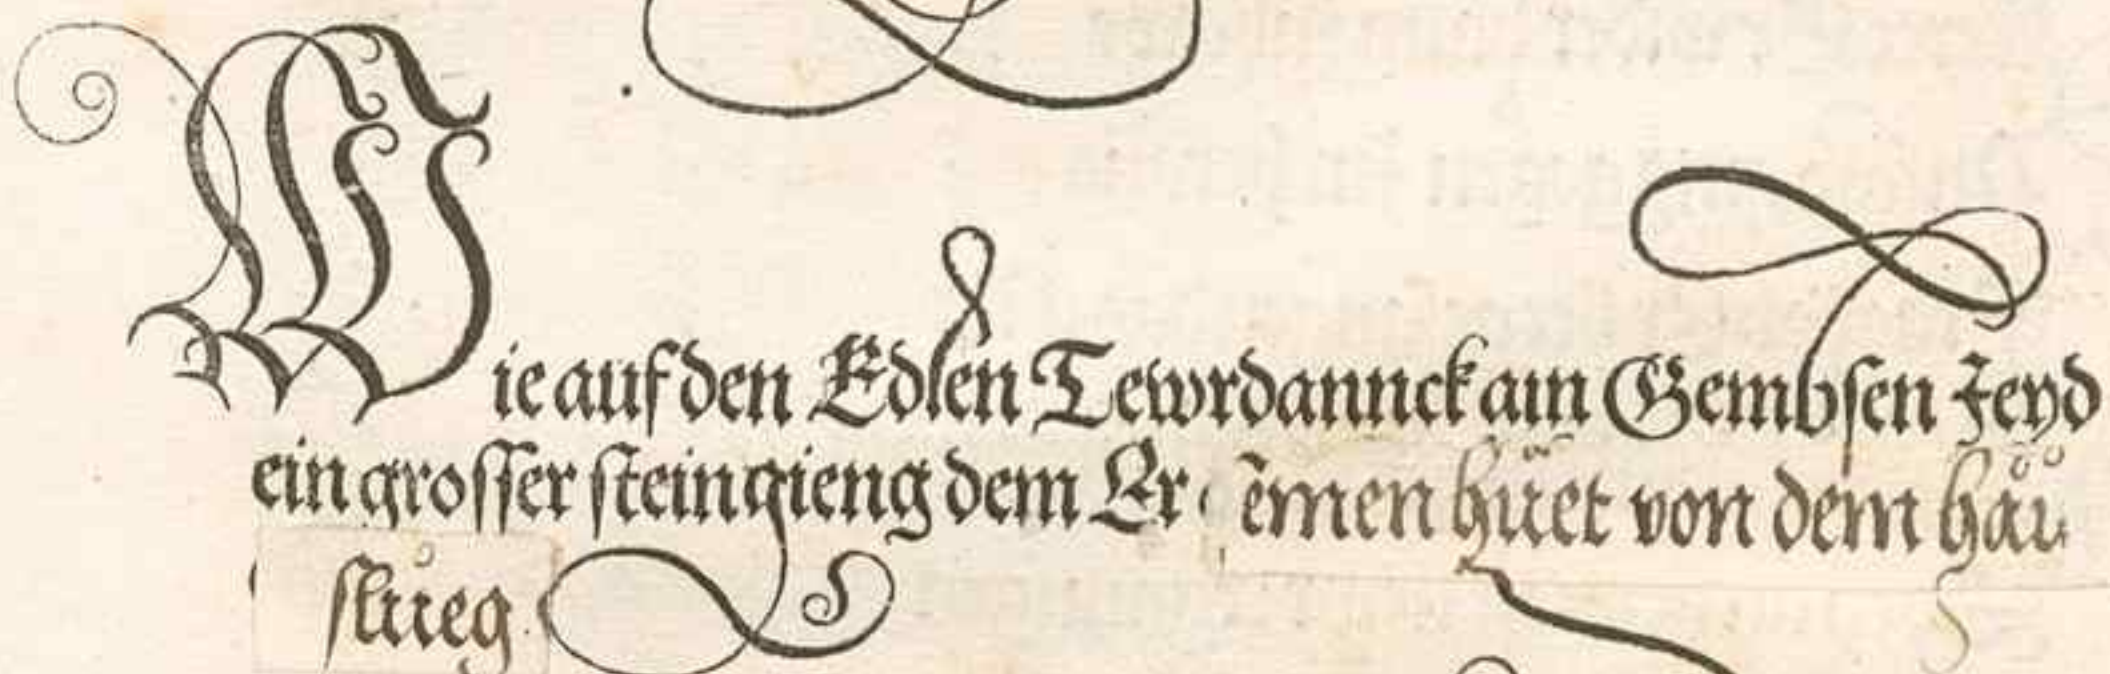 Wie auf den Edlen Tewrdannck am Gembsen Jeyd
ein grosser stein gieng dem Er
e᷈men hůet von dem hau
slůeg